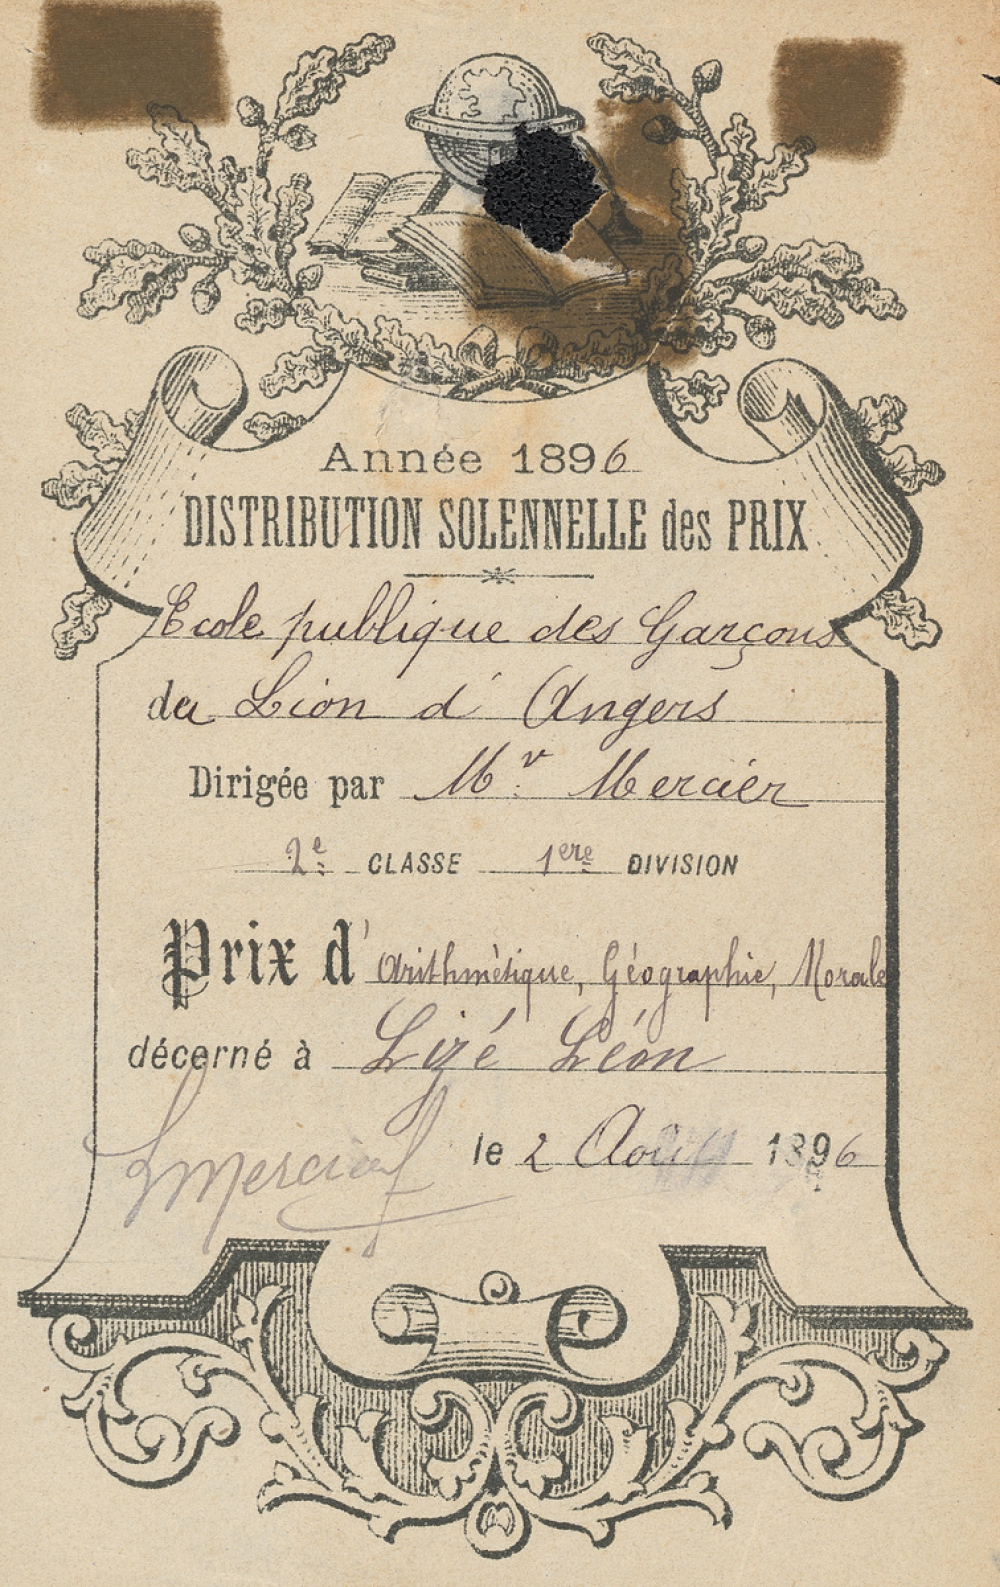 Année 1896
DISTRIBUTION SOLENNELLE des PRIX
Ecole publique des Garçons
du Lion d'Angers
Dirigée par Mr. Mercier
2e CLASSE 1ere DIVISION
Prix d'Arithmètique, Géographie, Morale
décerné à Lizé Léon
le 2 Août 1896
Mercier